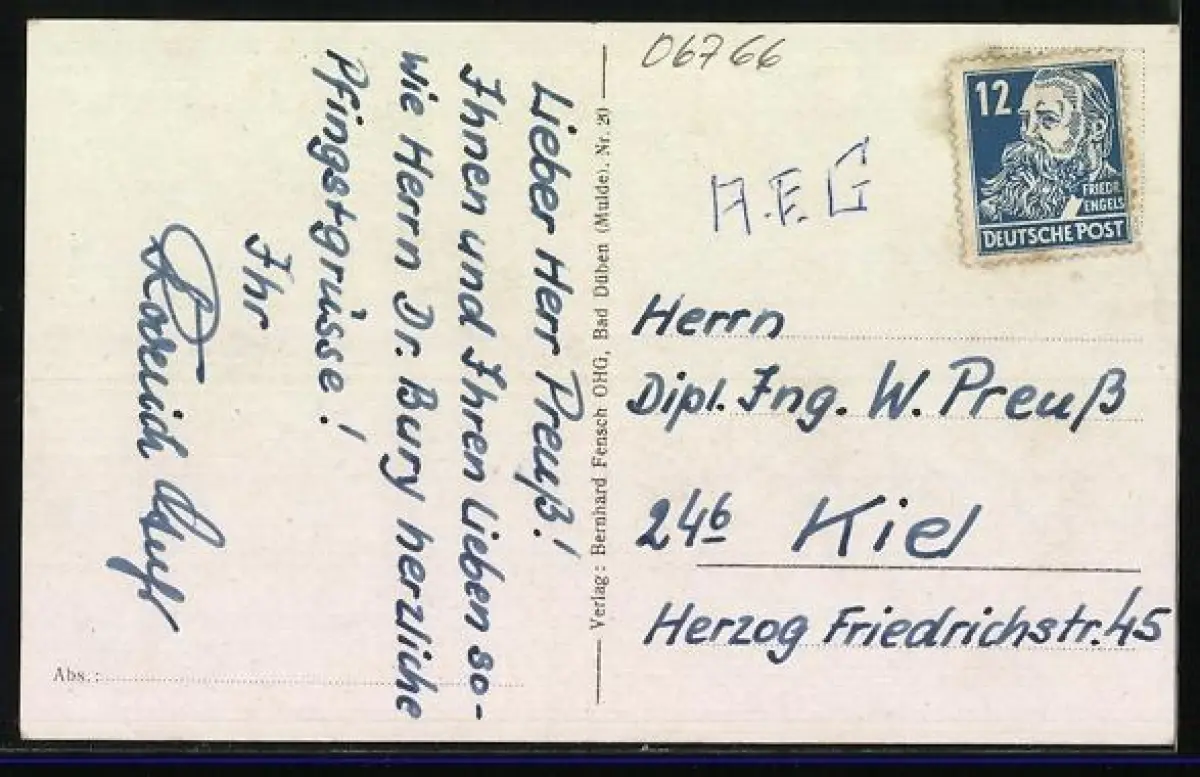 Lieber Herr Preuß!
Ihnen und Ihren Lieben so-
wie Herrn Dr. Bury herzliche
Pfingstgrüsse!
Ihr
Verlag: Bernhard Fensch OHG, Bad Düben (Mulde). Nr. 20
Abs.:
06766
A.E.G
12
FRIEDR.
ENGELS
DEUTSCHE POST
Herrn
Dipl. Ing. W. Preuß
24b Kiel
Herzog Friedrichstr. 45